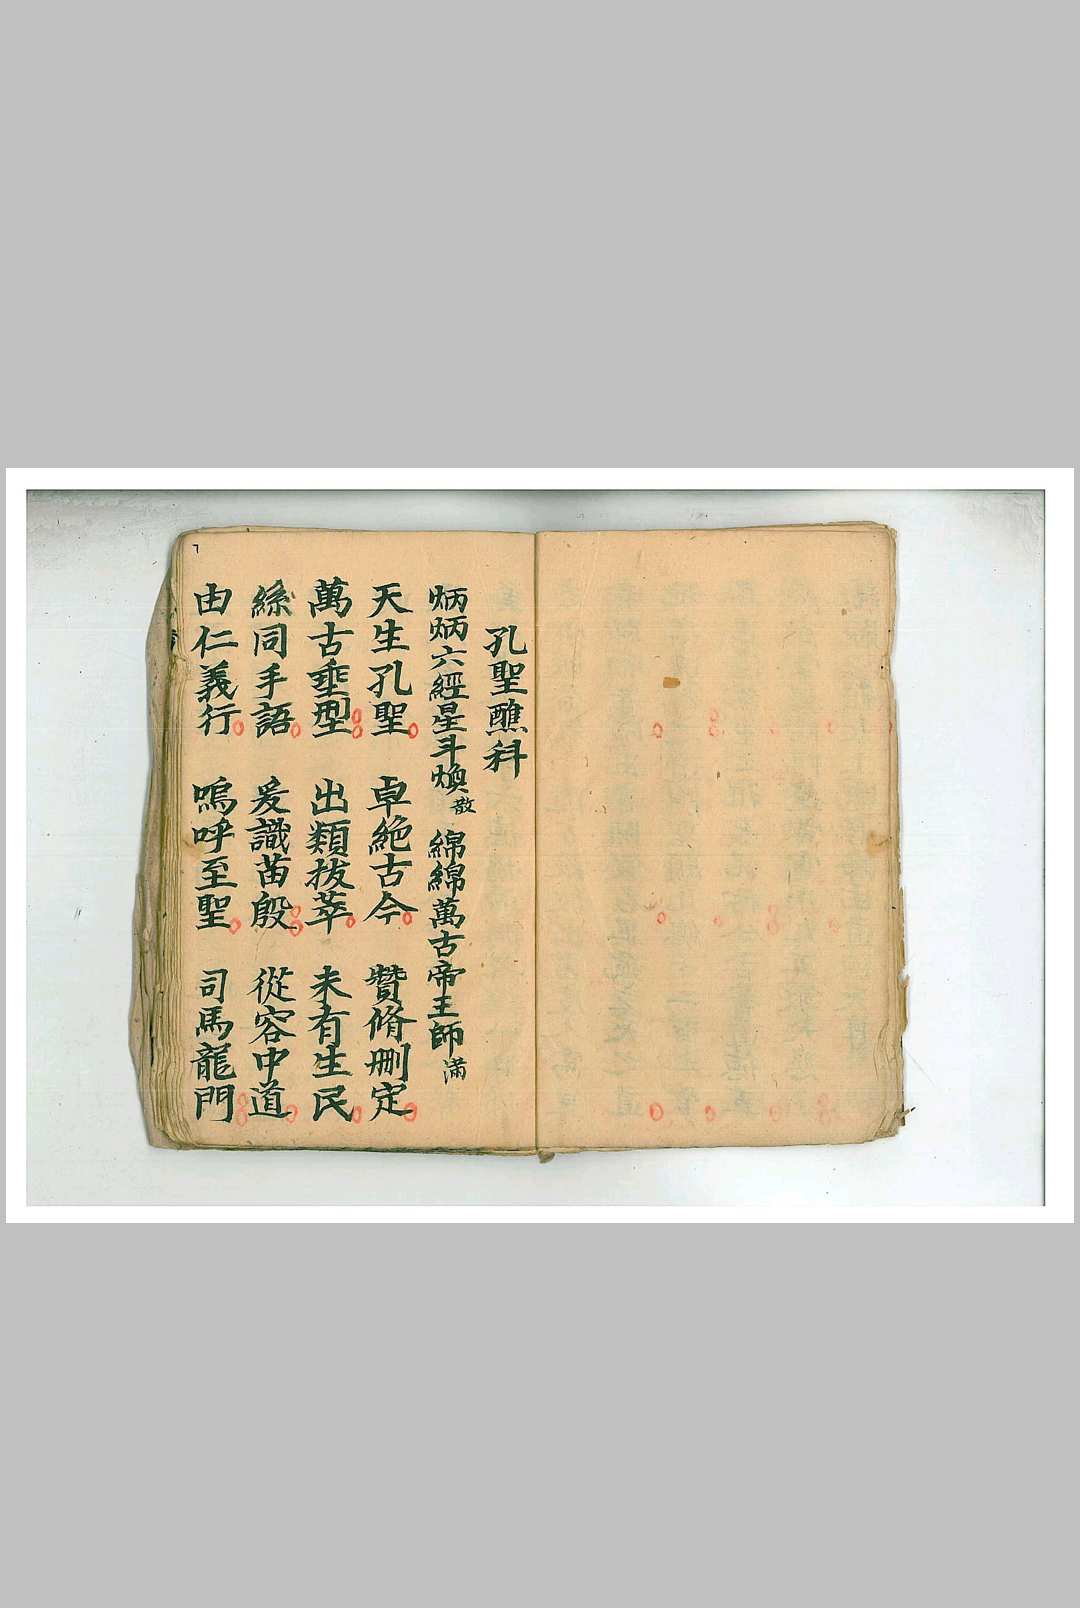 孔聖醮科
炳炳六經星斗煥散 綿綿萬古帝王師滿
天生孔聖 卓絶古今 贊脩刪定
萬古垂型 出類拔萃 未有生民
絲同手語 爰識苗殷 從容中道
由仁義行 嗚呼至聖 司馬龍門